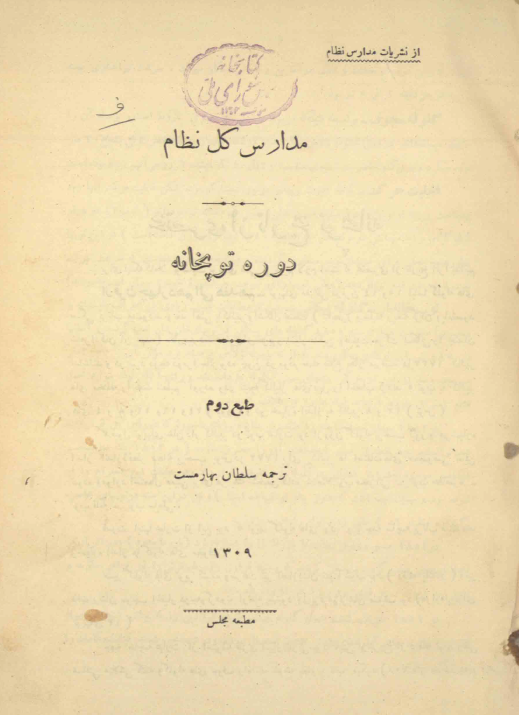 از نشریات مدارس نظام
کتابخانه
مدارس کل نظام
دوره توپخانه
طبع دوم
ترجمه سلطان بهارمست
۱۳۰۹
مطبعه مجلس